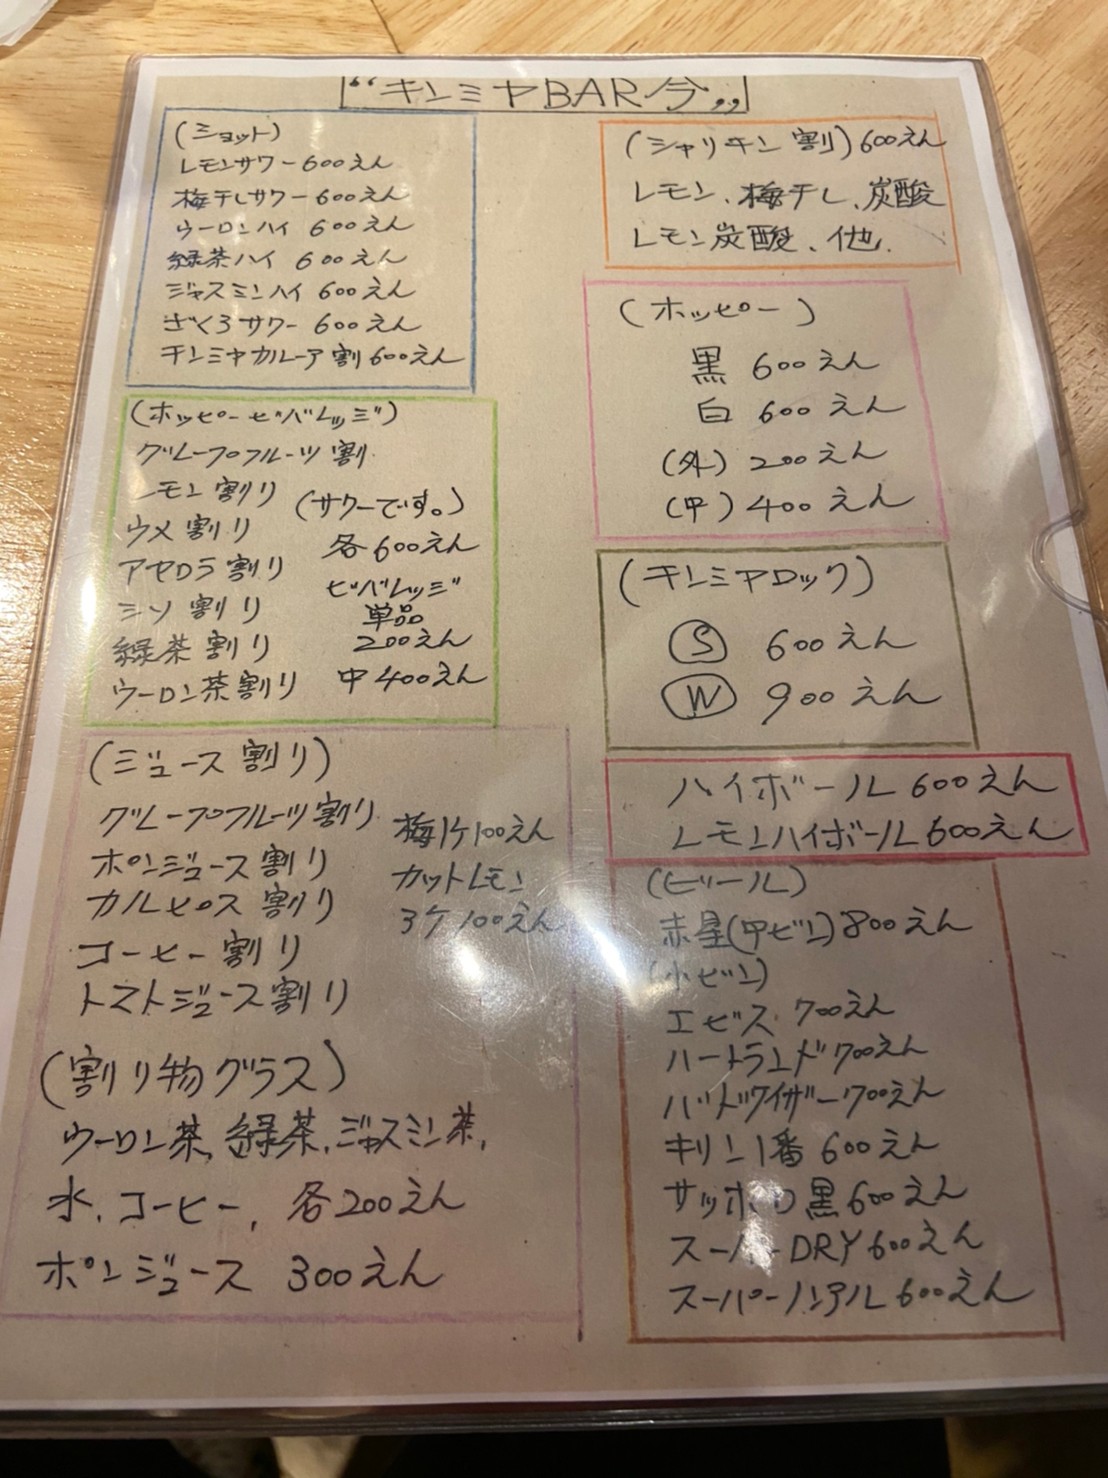 “キンミヤBAR今„
(ショット)
レモンサワー600えん
梅干しサワー600えん
ウーロンハイ 600えん
緑茶ハイ 600えん
ジャスミンハイ 600えん
ざくろサワー 600えん
キンミヤカルーア割600えん
(ホッピービバレッジ)
グレープフルーツ割
レモン割り
(サワーです。)
ウメ割り
各600えん
アセロラ割り
ビバレッジ
単品
シソ割り
200えん
緑茶割り
中400えん
ウーロン茶割り
(ジュース割り)
グレープフルーツ割り
梅1ケ100えん
ポンジュース割り
カットレモン
カルピス割り
3ケ100えん
コーヒー割り
トマトジュース割り
(割り物グラス)
ウーロン茶、緑茶、ジャスミン茶、
水、コーヒー、各200えん
ポンジュース 300えん
(シャリキン割)600えん
レモン、梅干し、炭酸
レモン炭酸、他、
(ホッピー)
黒 600えん
白 600えん
(外) 200えん
(中) 400えん
(キンミヤロック)
S 600えん
W 900えん
ハイボール600えん
レモンハイボール600えん
(ビール)
赤星(中ビン)800えん
(小ビン)
エビス 700えん
ハートランド700えん
バドワイザー700えん
キリン1番 600えん
サッポロ黒600えん
スーパーDRY600えん
スーパーノンアル600えん